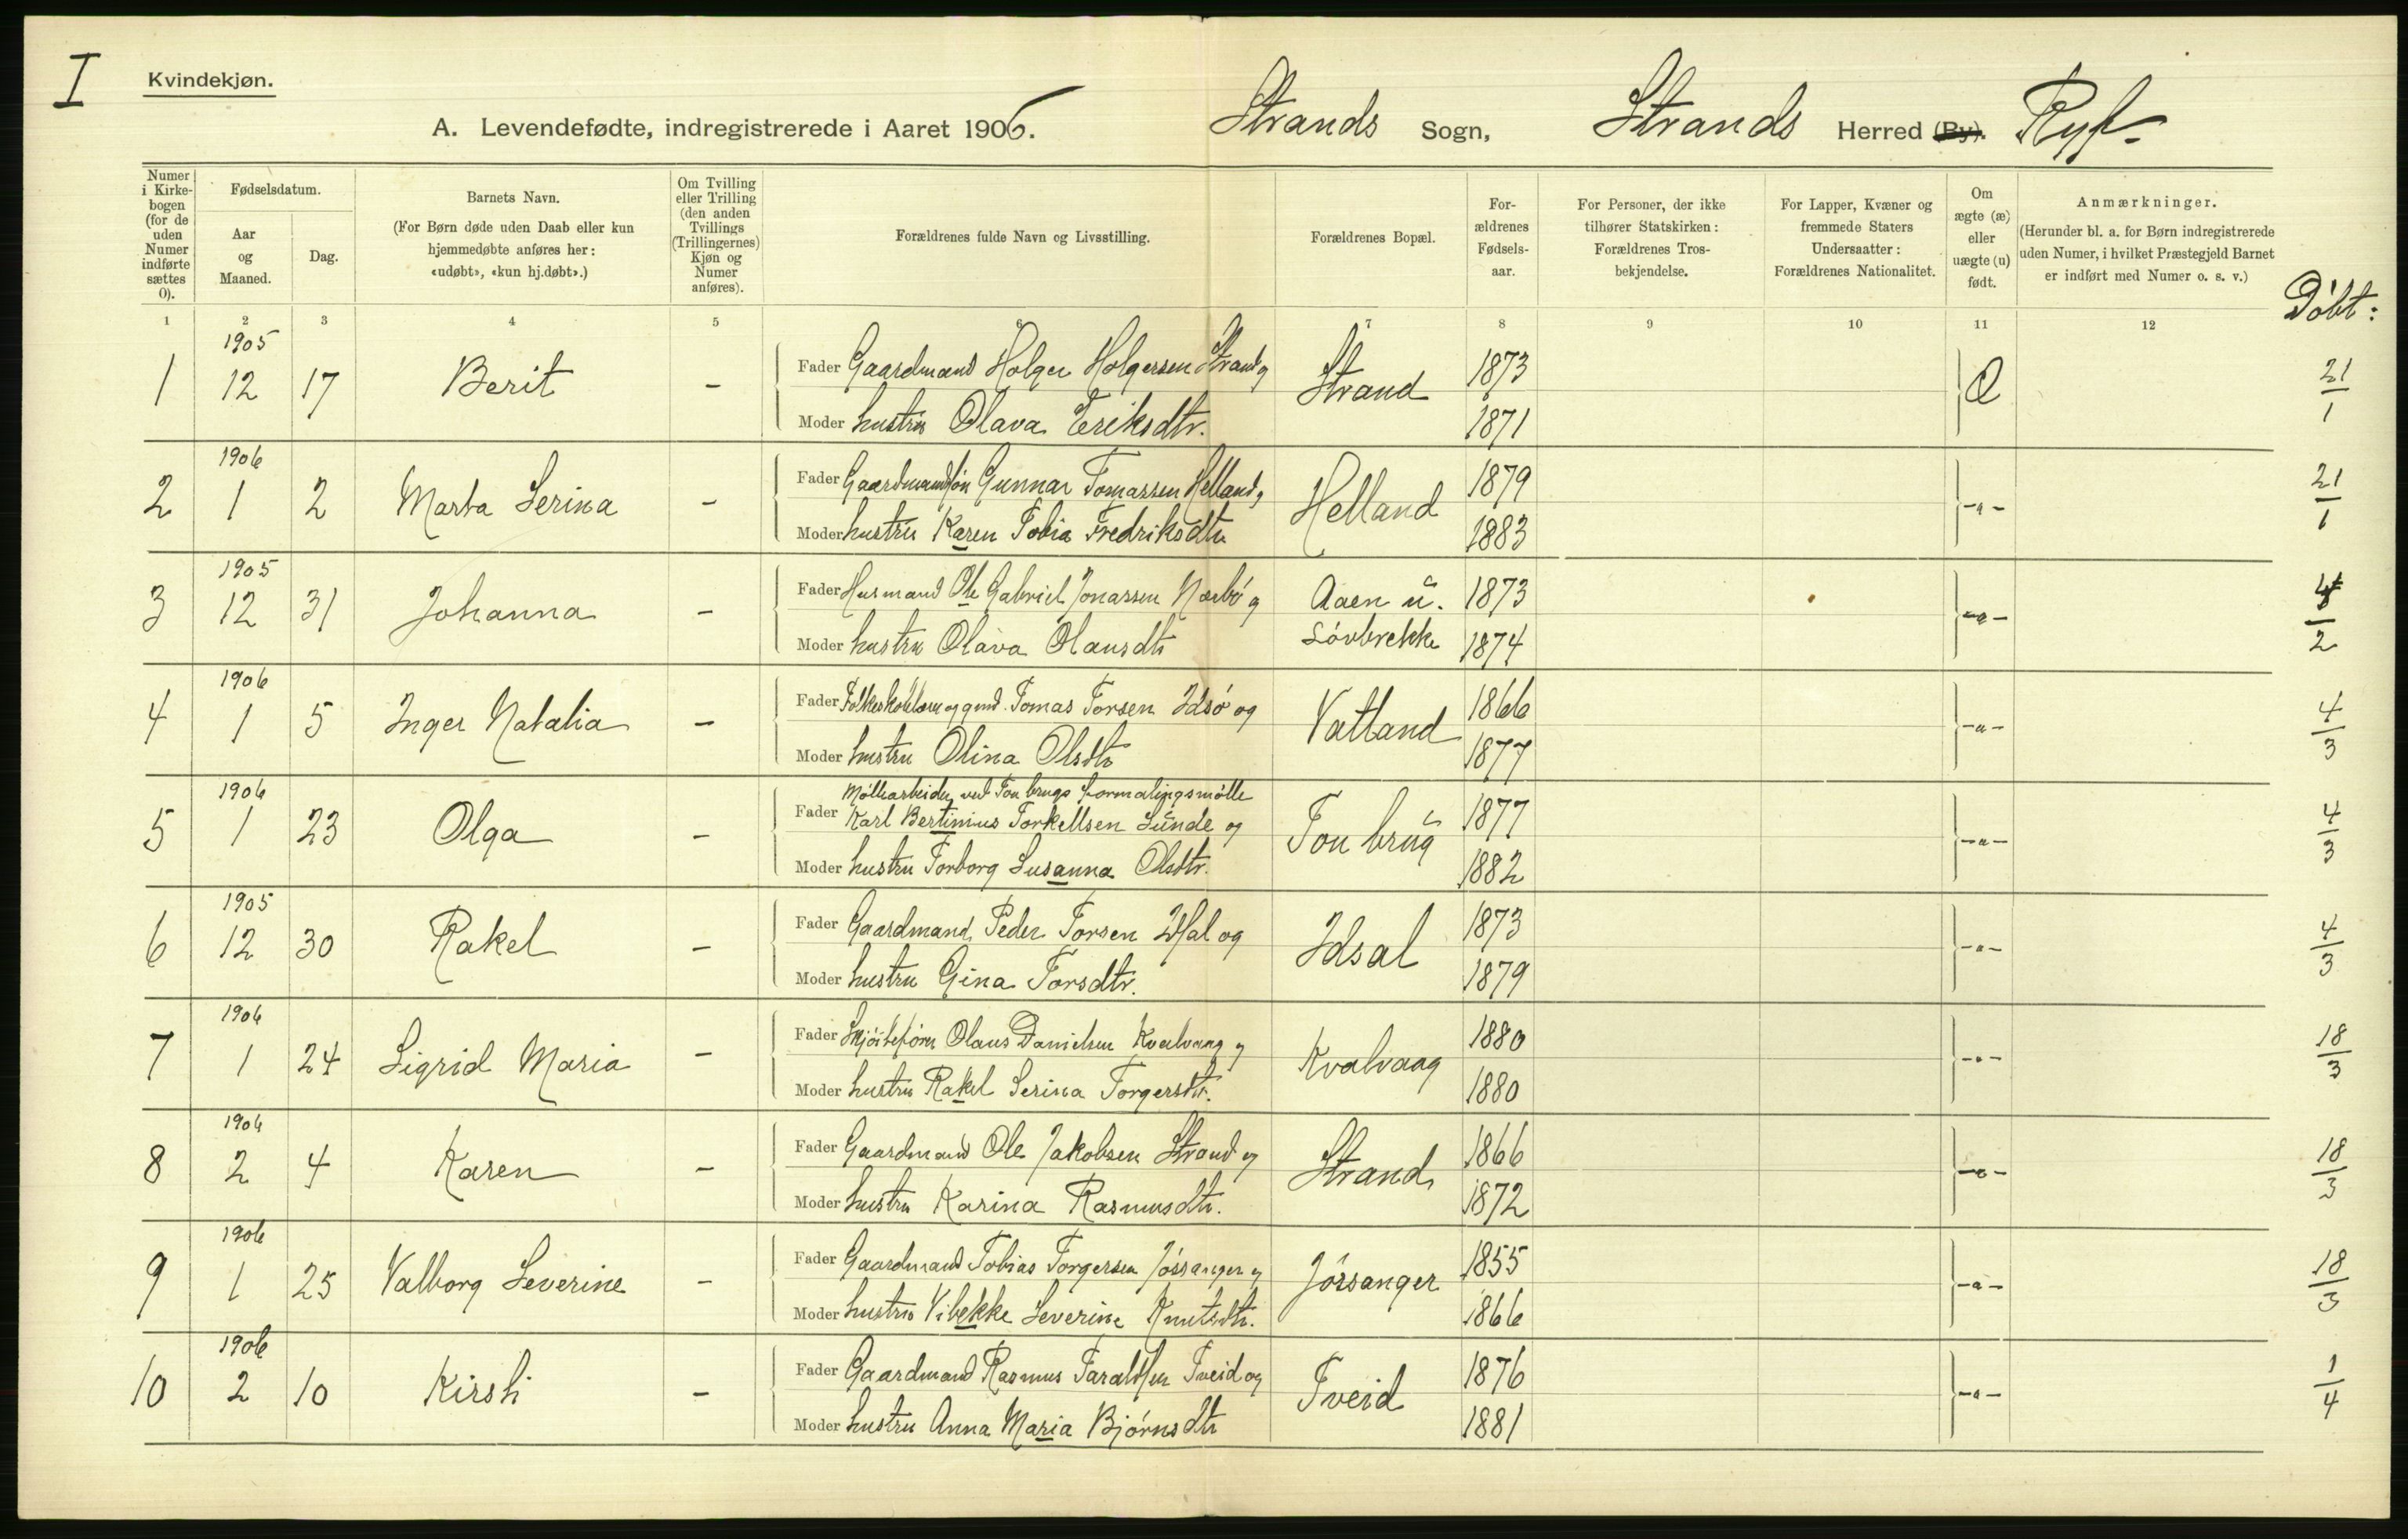 I
Kvindekjøn.
A. Levendefødte, indregistrerede i Aaret 1906. Strands Sogn, Strands Herred (By). Ryf-
Numer i Kirkebogen (for de uden Numer indførte sættes 0).
Fødselsdatum.
Aar og Maaned.
Dag.
Barnets Navn.
(For Børn døde uden Daab eller kun hjemmedøbte anføres her: «udøbt», «kun hj.døbt».)
Om Tvilling eller Trilling (den anden Tvillings (Trillingernes) Kjøn og Numer anføres).
Forældrenes fulde Navn og Livsstilling.
Forældrenes Bopæl.
Forældrenes Fødselsaar.
For Personer, der ikke tilhører Statskirken: Forældrenes Trosbekjendelse.
For Lapper, Kvæner og fremmede Staters Undersaatter: Forældrenes Nationalitet.
Om ægte (æ) eller uægte (u) født.
Anmærkninger.
(Herunder bl. a. for Børn indregistrerede uden Numer, i hvilket Præstegjeld Barnet er indført med Numer o. s. v.)
Döbt:
1 2 3 4 5 6 7 8 9 10 11 12
1 1905 12 17 Berit - Fader Gaardmand Holger Holgersen Strand og Strand 1873 21/1
Moder hustru Olava Eriksdtr. 1871
2 1906 1 2 Marta Serina - Fader Gaardmandsön Gunnar Tomassen Helland, Helland 1879 -"- 21/1
Moder hustru Karen Tobia Fredriksdtr 1883
3 1905 12 31 Johanna - Fader Husmand Ole Gabriel Jonassen Nærbö og Aaen u. Lövbrekke 1873 -"- 4/2
Moder hustru Olava Olausdtr 1874
4 1906 1 5 Inger Natalia - Fader Tomas Torsen Idsö og Vatland 1866 -"- 4/3
Moder hustru Olina Olsdtr 1877
5 1906 1 23 Olga - Möllearbeider ved Tou brugs formalingsmölle
Fader Karl Bertinius Torkellsen Lunde og Tou brug 1877 -"- 4/3
Moder hustru Torborg Susanna Olsdtr. 1882
6 1905 12 30 Rakel - Fader Gaardmand Peder Torsen Idsal og Idsal 1873 -"- 4/3
Moder hustru Gina Torsdtr. 1879
7 1906 1 24 Sigrid Maria - Fader Skjöitefören Olaus Danielsen Kvalvaag og Kvalvaag 1880 -"- 18/3
Moder hustru Rakel Serina Torgersdtr. 1880
8 1906 2 4 Karen - Fader Gaardmand Ole Jakobsen Strand og Strand 1866 -"- 18/3
Moder hustru Karina Rasmusdtr. 1872
9 1906 1 25 Valborg Severine - Fader Gaardmand Tobias Torgersen Jössanger og Jössanger 1855 -"- 18/3
Moder hustru Vibekke Severine Knutsdtr. 1866
10 1906 2 10 Kirsti - Fader Gaardmand Rasmus Taraldsen Tveid og Tveid 1876 -"- 1/4
Moder hustru Anna Maria Björnsdtr 1881